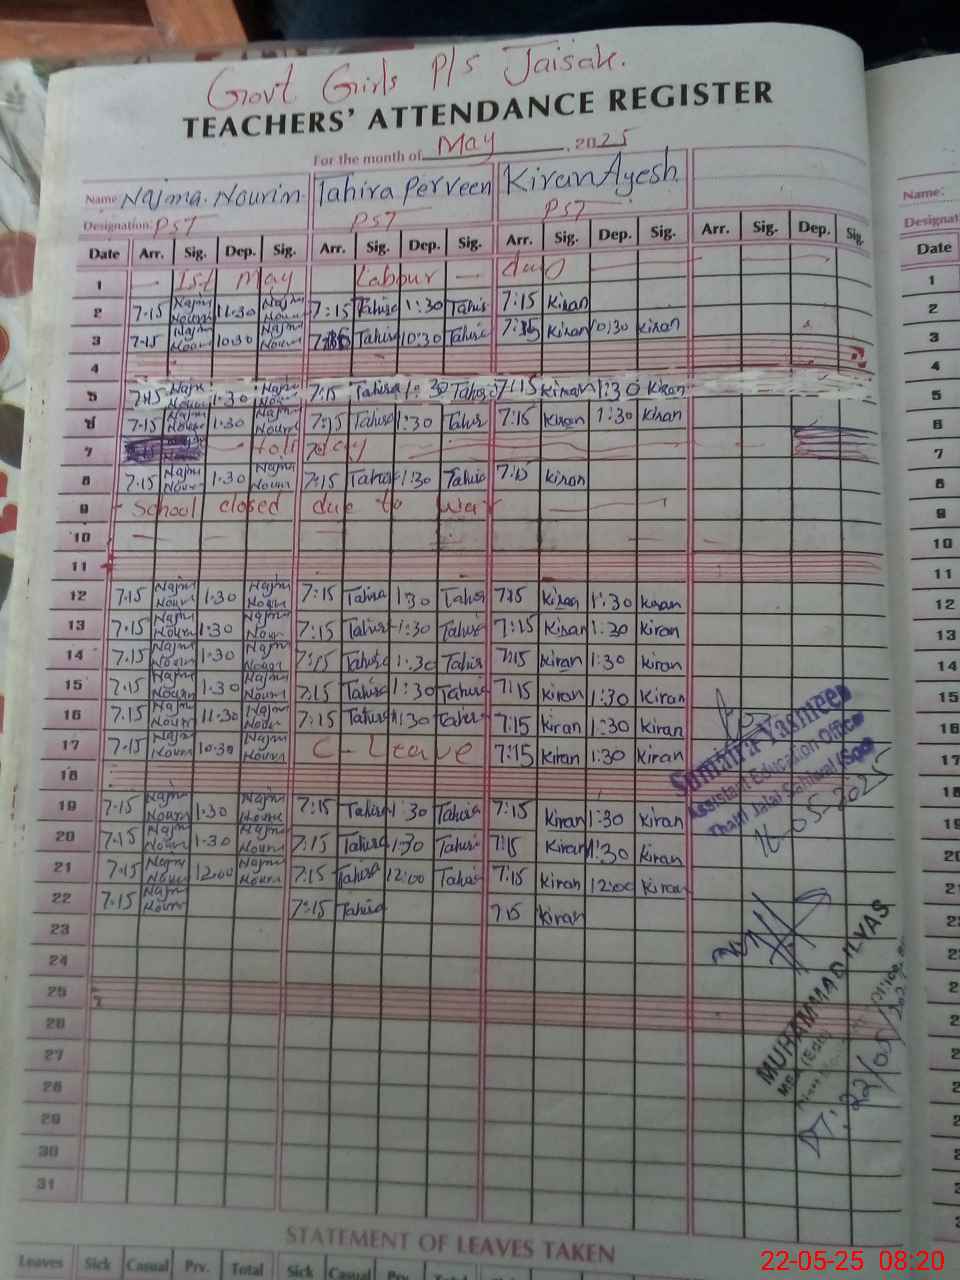 Govt Girls P/S Jaisak.
TEACHERS' ATTENDANCE REGISTER
For the month of May, 2025
Name Najma Nourin Tahira Perveen Kiran Ayesh
Designation: PST PST PST
Date Arr. Sig. Dep. Sig. Arr. Sig. Dep. Sig. Arr. Sig. Dep. Sig. Arr. Sig. Dep. Sig.
1 1st May Labour day
2 7:15 Najma Nourin 11:30 Najma Nourin 7:15 Tahira 1:30 Tahir 7:15 Kiran
3 7:15 Najma Nourin 10:30 Najma Nourin Tahira 10:30 Tahira 7:15 Kiran 10:30 Kiran
4
5 7:15 Najma Nourin 1:30 Najma Nourin 7:15 Tahira 1:30 Tahira 7:15 Kiran 1:30 Kiran
6 7:15 Najma Nourin 1:30 Najma Nourin 7:15 Tahira 1:30 Tahir 7:15 Kiran 1:30 Kiran
7 Holiday
8 7:15 Najma Nourin 1:30 Najma Nourin 7:15 Tahira 1:30 Tahira 7:15 Kiran
9 School closed due to War
10
11
12 7:15 Najma Nourin 1:30 Najma Nourin 7:15 Tahira 1:30 Tahira 7:15 Kiran 1:30 Kiran
13 7:15 Najma Nourin 1:30 Najma Nourin 7:15 Tahira 1:30 Tahira 7:15 Kiran 1:30 Kiran
14 7:15 Najma Nourin 1:30 Najma Nourin 7:15 Tahira 1:30 Tahir 7:15 Kiran 1:30 Kiran
15 7:15 Najma Nourin 1:30 Najma Nourin 7:15 Tahira 1:30 Tahira 7:15 Kiran 1:30 Kiran
16 7:15 Najma Nourin 11:30 Najma Nourin 7:15 Tahira 1:30 Tahira 7:15 Kiran 1:30 Kiran
17 7:15 Najma Nourin 10:30 Najma Nourin C-Leave 7:15 Kiran 1:30 Kiran
18
19 7:15 Najma Nourin 1:30 Najma Nourin 7:15 Tahira 1:30 Tahira 7:15 Kiran 1:30 Kiran
20 7:15 Najma Nourin 1:30 Najma Nourin 7:15 Tahira 1:30 Tahira 7:15 Kiran 1:30 Kiran
21 7:15 Najma Nourin 12:00 Najma Nourin 7:15 Tahira 12:00 Tahira 7:15 Kiran 12:00 Kiran
22 7:15 Najma Nourin 7:15 Tahira 7:15 Kiran
23
24
25
26
27
28
29
30
31
Sumaira Yasmeen
Assistant Education Officer
16-05-2025
MUHAMMAD ILYAS
DT: 22/05/202
STATEMENT OF LEAVES TAKEN
Leaves Sick Casual Prv. Total Sick Casual Prv. Total
Name:
Date
1
2
3
4
5
6
7
8
9
10
11
12
13
14
15
16
17
22-05-25 08:20